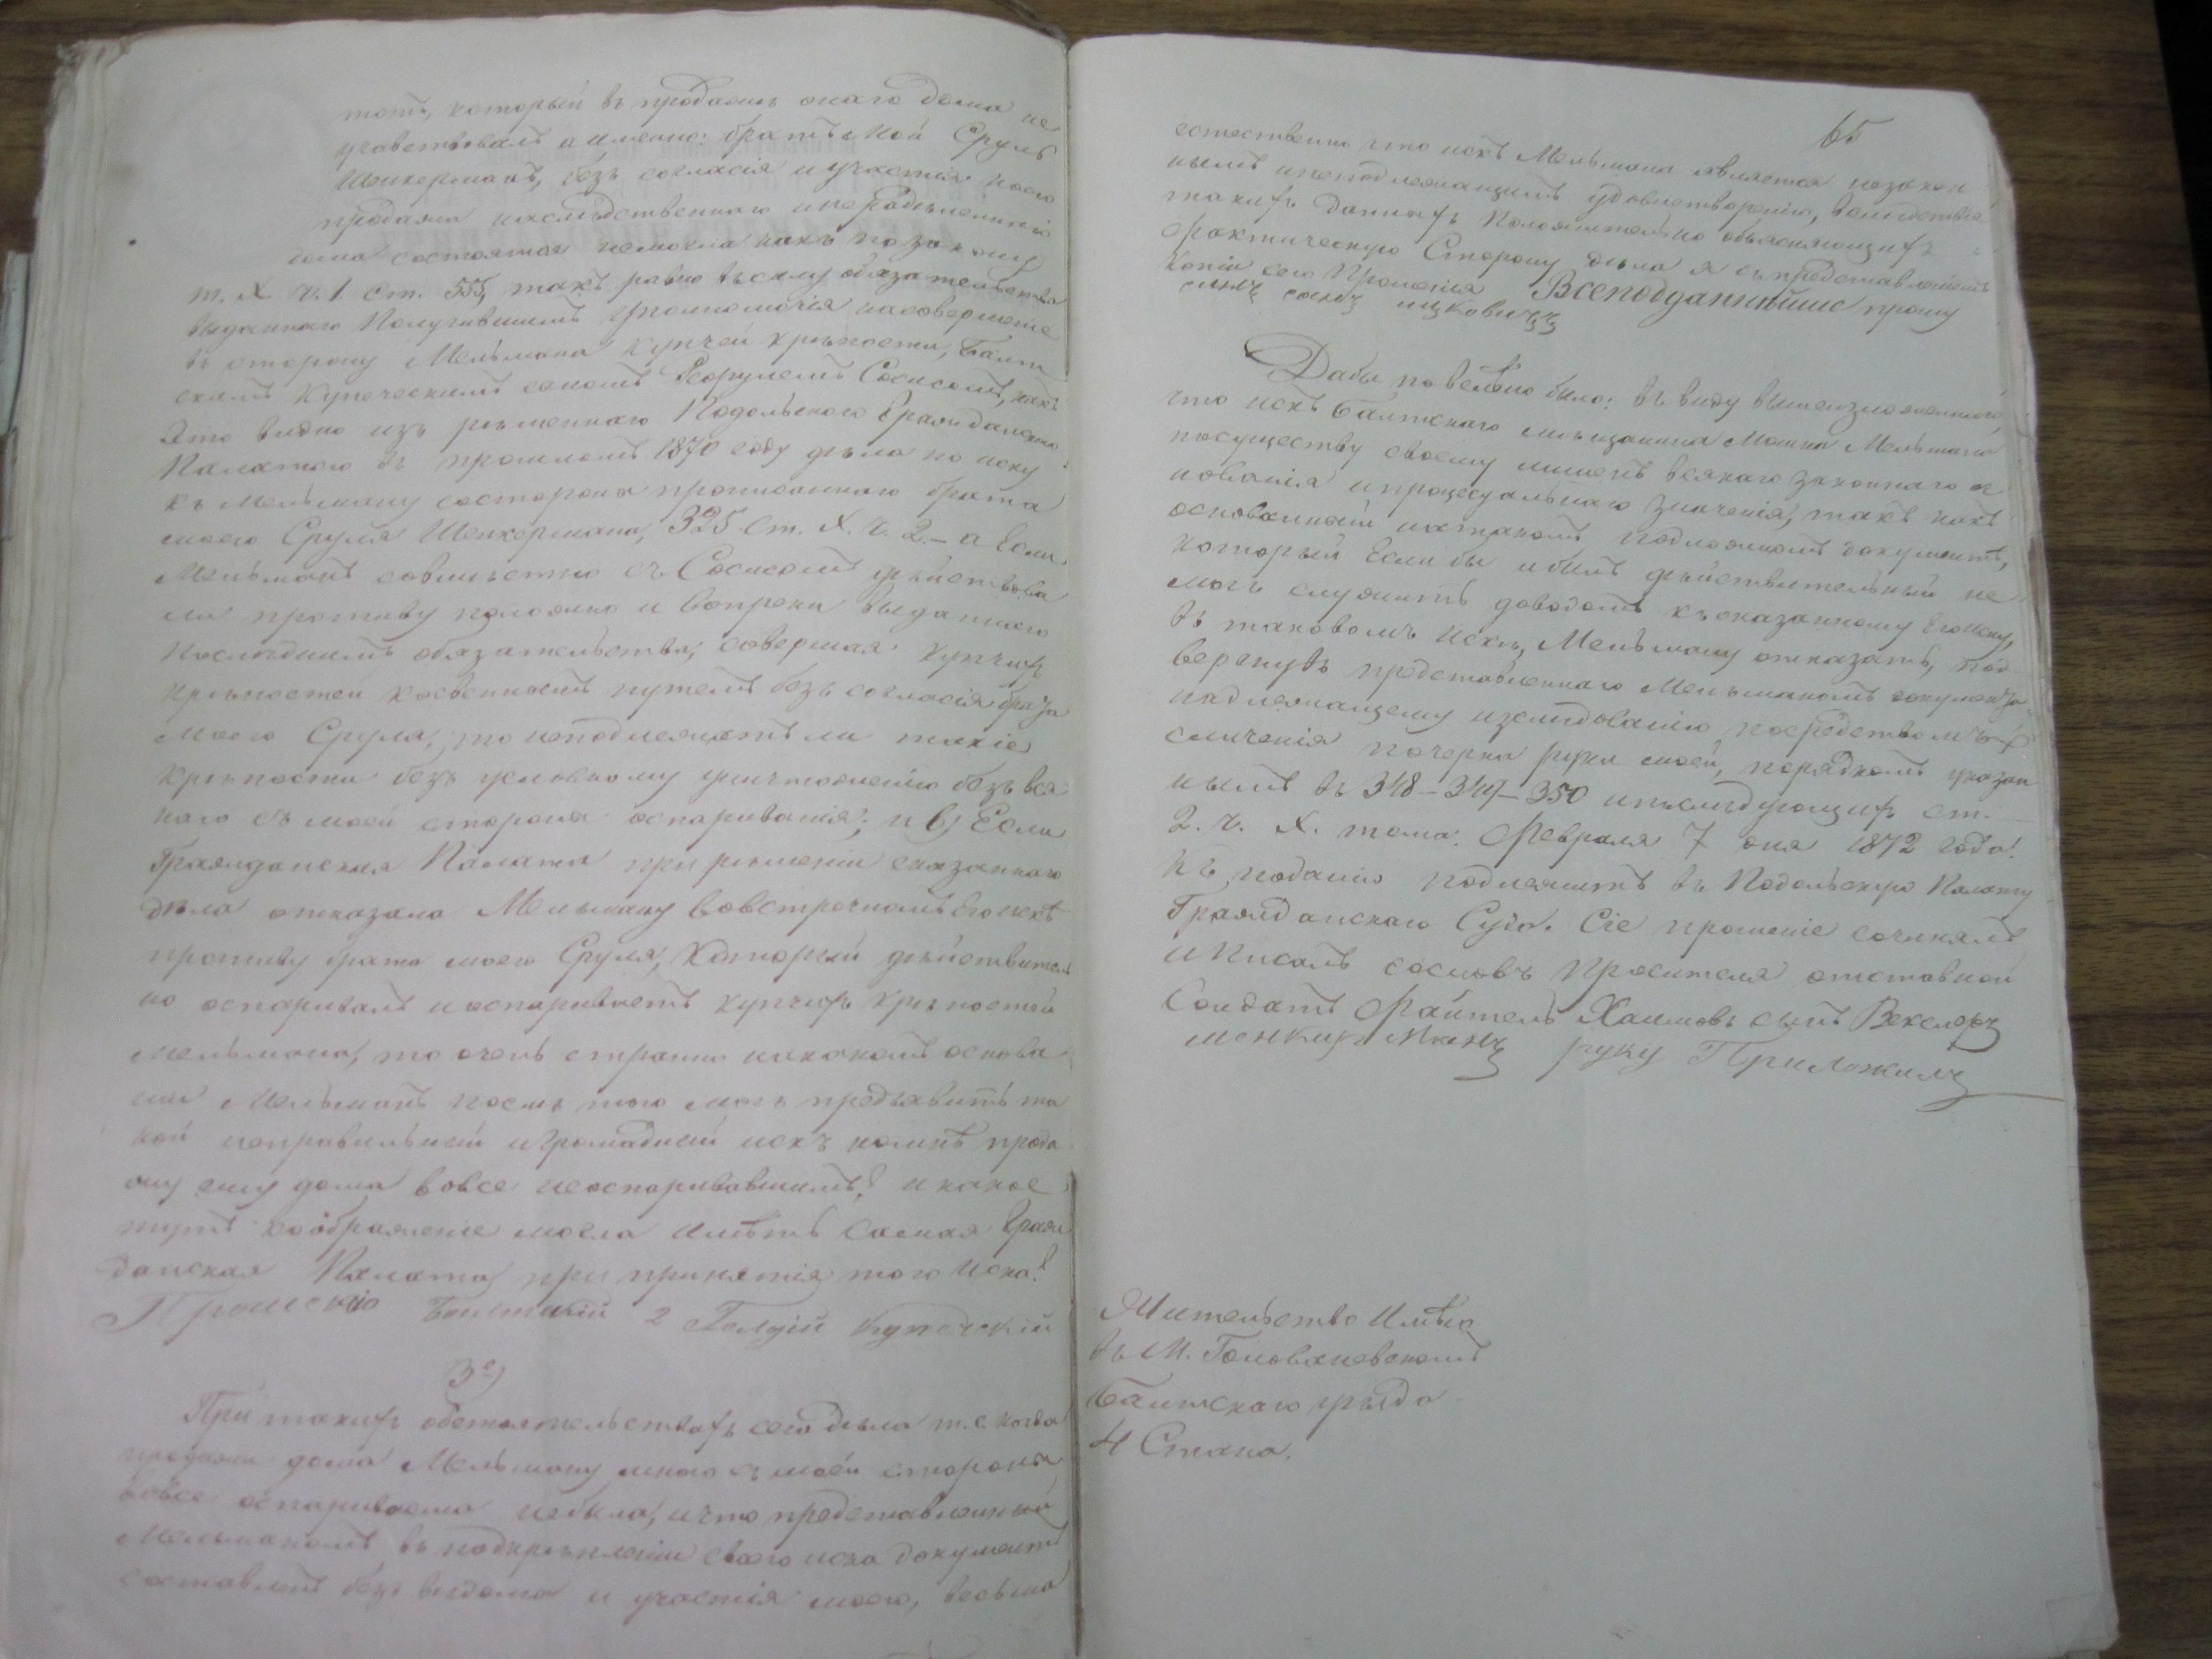 тотъ, который въ продажѣ онаго дома не
участвовалъ а именно: братъ мой Сруль
Шенкерманъ, безъ согласія и участія коего
продажа наслѣдственнаго и нераздѣленнаго
дома состоятся не могла какъ по закону
т. X ч. 1 ст. 555, такъ равно въ силу обязательства
выданнаго получившимъ уполномочія на совершеніе
въ сторону Мельмана купчей крѣпости, Балт
скимъ купеческимъ сыномъ Сосисомъ, какъ
это видно изъ рѣшеннаго Подольскою Гражданскою
Палатою въ прошломъ 1870 году дѣла по иску
къ Мельману со стороны прописаннаго брата
моего Сруля Шенкермана, 325 ст. X. ч. 2. – а Если
Мельманъ совмѣстно съ Сосисомъ дѣйствова
ли противу положно и вопреки выданнаго
послѣднимъ обязательства, совершая купчихъ
крѣпостей косвеннымъ путемъ безъ согласія брата
моего Сруля, то неподлежатъ ли такіе
крѣпости безъ условному уничтоженію безъ вся
каго съ моей стороны оспариванія; и в) Если
Гражданская Палата при рѣшеніи сказаннаго
дѣла отказала Мельману во встрѣчномъ Его искѣ
противу брата моего Сруля, который дѣйствитель
но оспаривалъ и оспариваетъ купчихъ крѣпостей
Мельмана, то очень странно на какомъ основа
ніи Мельманъ послѣ того могъ предъявить та
кой неправильный и громадный искъ ко мнѣ прода
жу ему дома вовсе неоспаривавшимъ? и какое
тутъ соображеніе могла имѣть самая Граж
данская Палата при принятія того иска?
Прошенію Балтскій 2 Гилдіи Купеческій
3е)
При такихъ обстоятельствахъ сего дѣла т. е. когда
продажа дома Мельману мною съ моей стороны
вовсе оспариваема небыла, и что представленный
Мельманомъ въ подкрѣпленіи своего иска документъ
составленъ безъ вѣдома и участія моего, весьма
65
естественно что искъ Мельмана является незакон
нымъ и неподлежащимъ удовлетворенію, вслѣдствіе
такихъ данныхъ положительно объясняющихъ
фактическую Сторону дѣла я съ представленіемъ
копіи сего Прошенія Всеподданнѣйше прошу
сынъ ицковичъ
Дабы повелѣно было: въ виду вышеизложеннаго,
что искъ Балтскаго мѣщанина Мошка Мельмана
по существу своему лишенъ всякаго законнаго ос
нованія и процесуальнаго значенія, такъ какъ
основанный на такомъ подложномъ документѣ,
который Если бы и былъ дѣйствительный не
могъ служить доводомъ къ сказанному Его иску,
въ таковомъ искѣ, Мельману отказать, под
вергнувъ представленнаго Мельманомъ документа
надлежащему изслѣдованію посредствомъ
сличенія почерка руки моей, порядкомъ указан
нымъ въ 348–349–350 и послѣдующихъ ст.
2. ч. X. тома. Февраля 7 дня 1872 года.
Къ поданію подлежитъ въ Подольскую Палату
Гражданскаго Суда. Сіе прошеніе сочинялъ
и писалъ со словъ просителя отставной
Солдатъ Файтель Хаимовъ сынъ Векслеръ
шенкирманъ руку Приложилъ
Жительство Имѣю
въ М. Голованевскомъ
Балтскаго уѣзда
4 Стана.